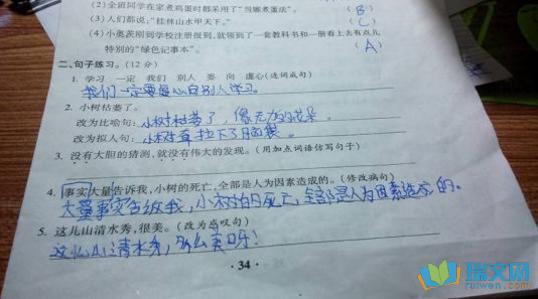 (2)全班同学在家煮鸡蛋时都采用了"当娜煮蛋法"。 (B)
(3)人们都说:"桂林山水甲天下。" (C)
(4)小奥茨刚到学校注册报到,就领到了一套教科书和一册看上去有点儿
特别的"绿色记事本"。 (A)
二、句子练习。(12分)
1. 学习 一定 我们 别人 要 向 虚心(连词成句)
我们一定要虚心向别人学习。
2. 小树枯萎了。
改为比喻句:小树枯萎了,像无力的花朵。
改为拟人句:小树耷拉下了脑袋。
3. 没有大胆的猜测,就没有伟大的发现。(用加点词语仿写句子)
4. 事实大量告诉我,小树的死亡,全部是人为因素造成的。(修改病句)
大量事实告诉我,小树的死亡,全部是人为因素造成的。
5. 这儿山清水秀,很美。(改为感叹句)
这儿山清水秀,多么美呀!
· 34 ·
瑞文网
ruiwen.com